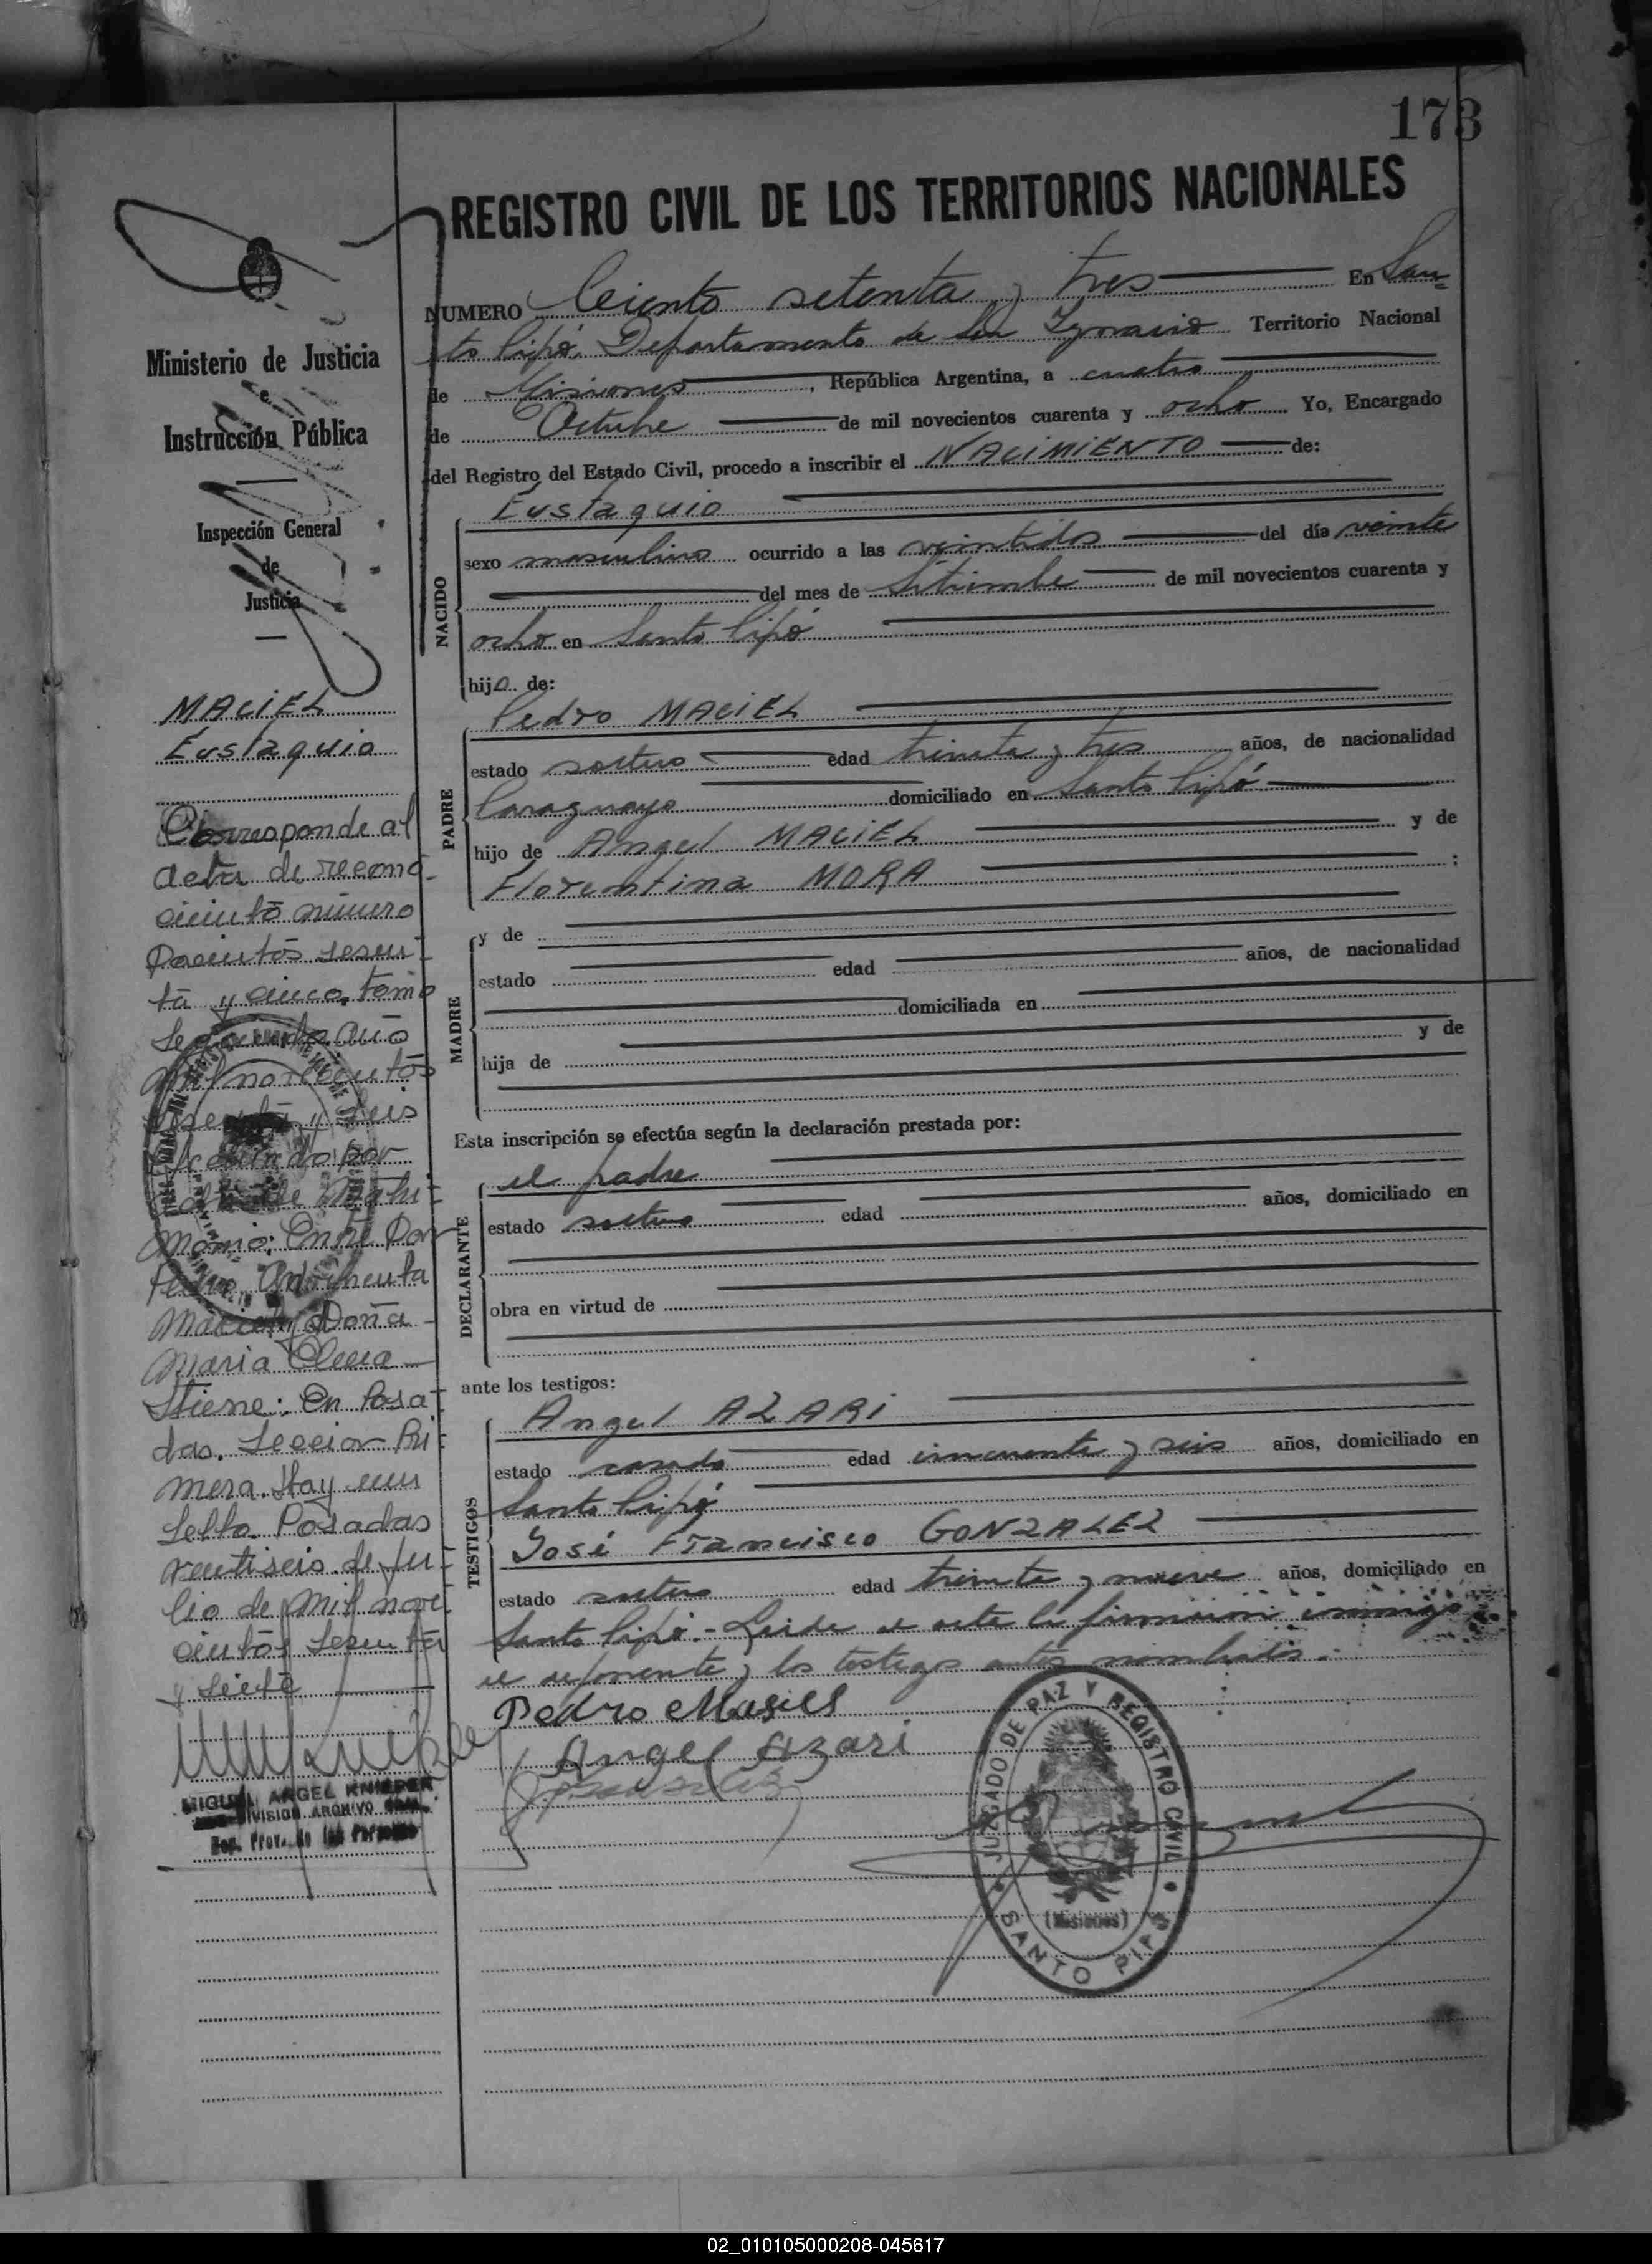 173
REGISTRO CIVIL DE LOS TERRITORIOS NACIONALES
NUMERO Ciento setenta y tres En San=
to Pipó. Departamento de San Ignacio Territorio Nacional
de Misiones, República Argentina, a cuatro
de Octubre de mil novecientos cuarenta y ocho Yo, Encargado
del Registro del Estado Civil, procedo a inscribir el NACIMIENTO de:
NACIDO
Eustaquio
sexo masculino ocurrido a las veintidos del día veinte
del mes de Setiembre de mil novecientos cuarenta y
ocho en Santo Pipó
hijo de:
PADRE
Pedro MACIEL
estado soltero edad treinta y tres años, de nacionalidad
Paraguayo domiciliado en Santo Pipó
hijo de Angel MACIEL y de
Florentina MORA ;
MADRE
y de
estado edad años, de nacionalidad
domiciliada en
hija de y de
Esta inscripción se efectúa según la declaración prestada por:
DECLARANTE
el padre
estado soltero edad años, domiciliado en
obra en virtud de
ante los testigos:
TESTIGOS
Angel AZARI
estado casado edad cincuenta y seis años, domiciliado en
Santo Pipó
José Francisco GONZALEZ
estado soltero edad treinta y nueve años, domiciliado en
Santo Pipó.- Leida el acta la firmaron conmigo
el deponente y los testigos antes nombrados.
Pedro Masiel
Angel Azari
JUZGADO DE PAZ Y REGISTRO CIVIL
(Misiones)
SANTO PIPÓ
Ministerio de Justicia
e
Instrucción Pública
Inspección General
de
Justicia
MACIEL
Eustaquio
Corresponde al
acta de recono-
cimiento número
Docientos sesen-
ta y cinco, tomo
Segundo año
mil novecientos
sesenta y seis
por
acta de Matri-
monio: Entre Don
Pedro
Maciel y Doña
Maria Elena
Stiene: En Posa-
das. Seccion Pri-
mera. Hay un
Sello. Posadas
ventiseis de Ju-
lio de Mil nove-
cientos sesenta
y siete
MIGUEL ANGEL KNIEPER
DIVISION ARCHIVO GRAL.
Reg. Prov. de las Personas
02_010105000208-045617